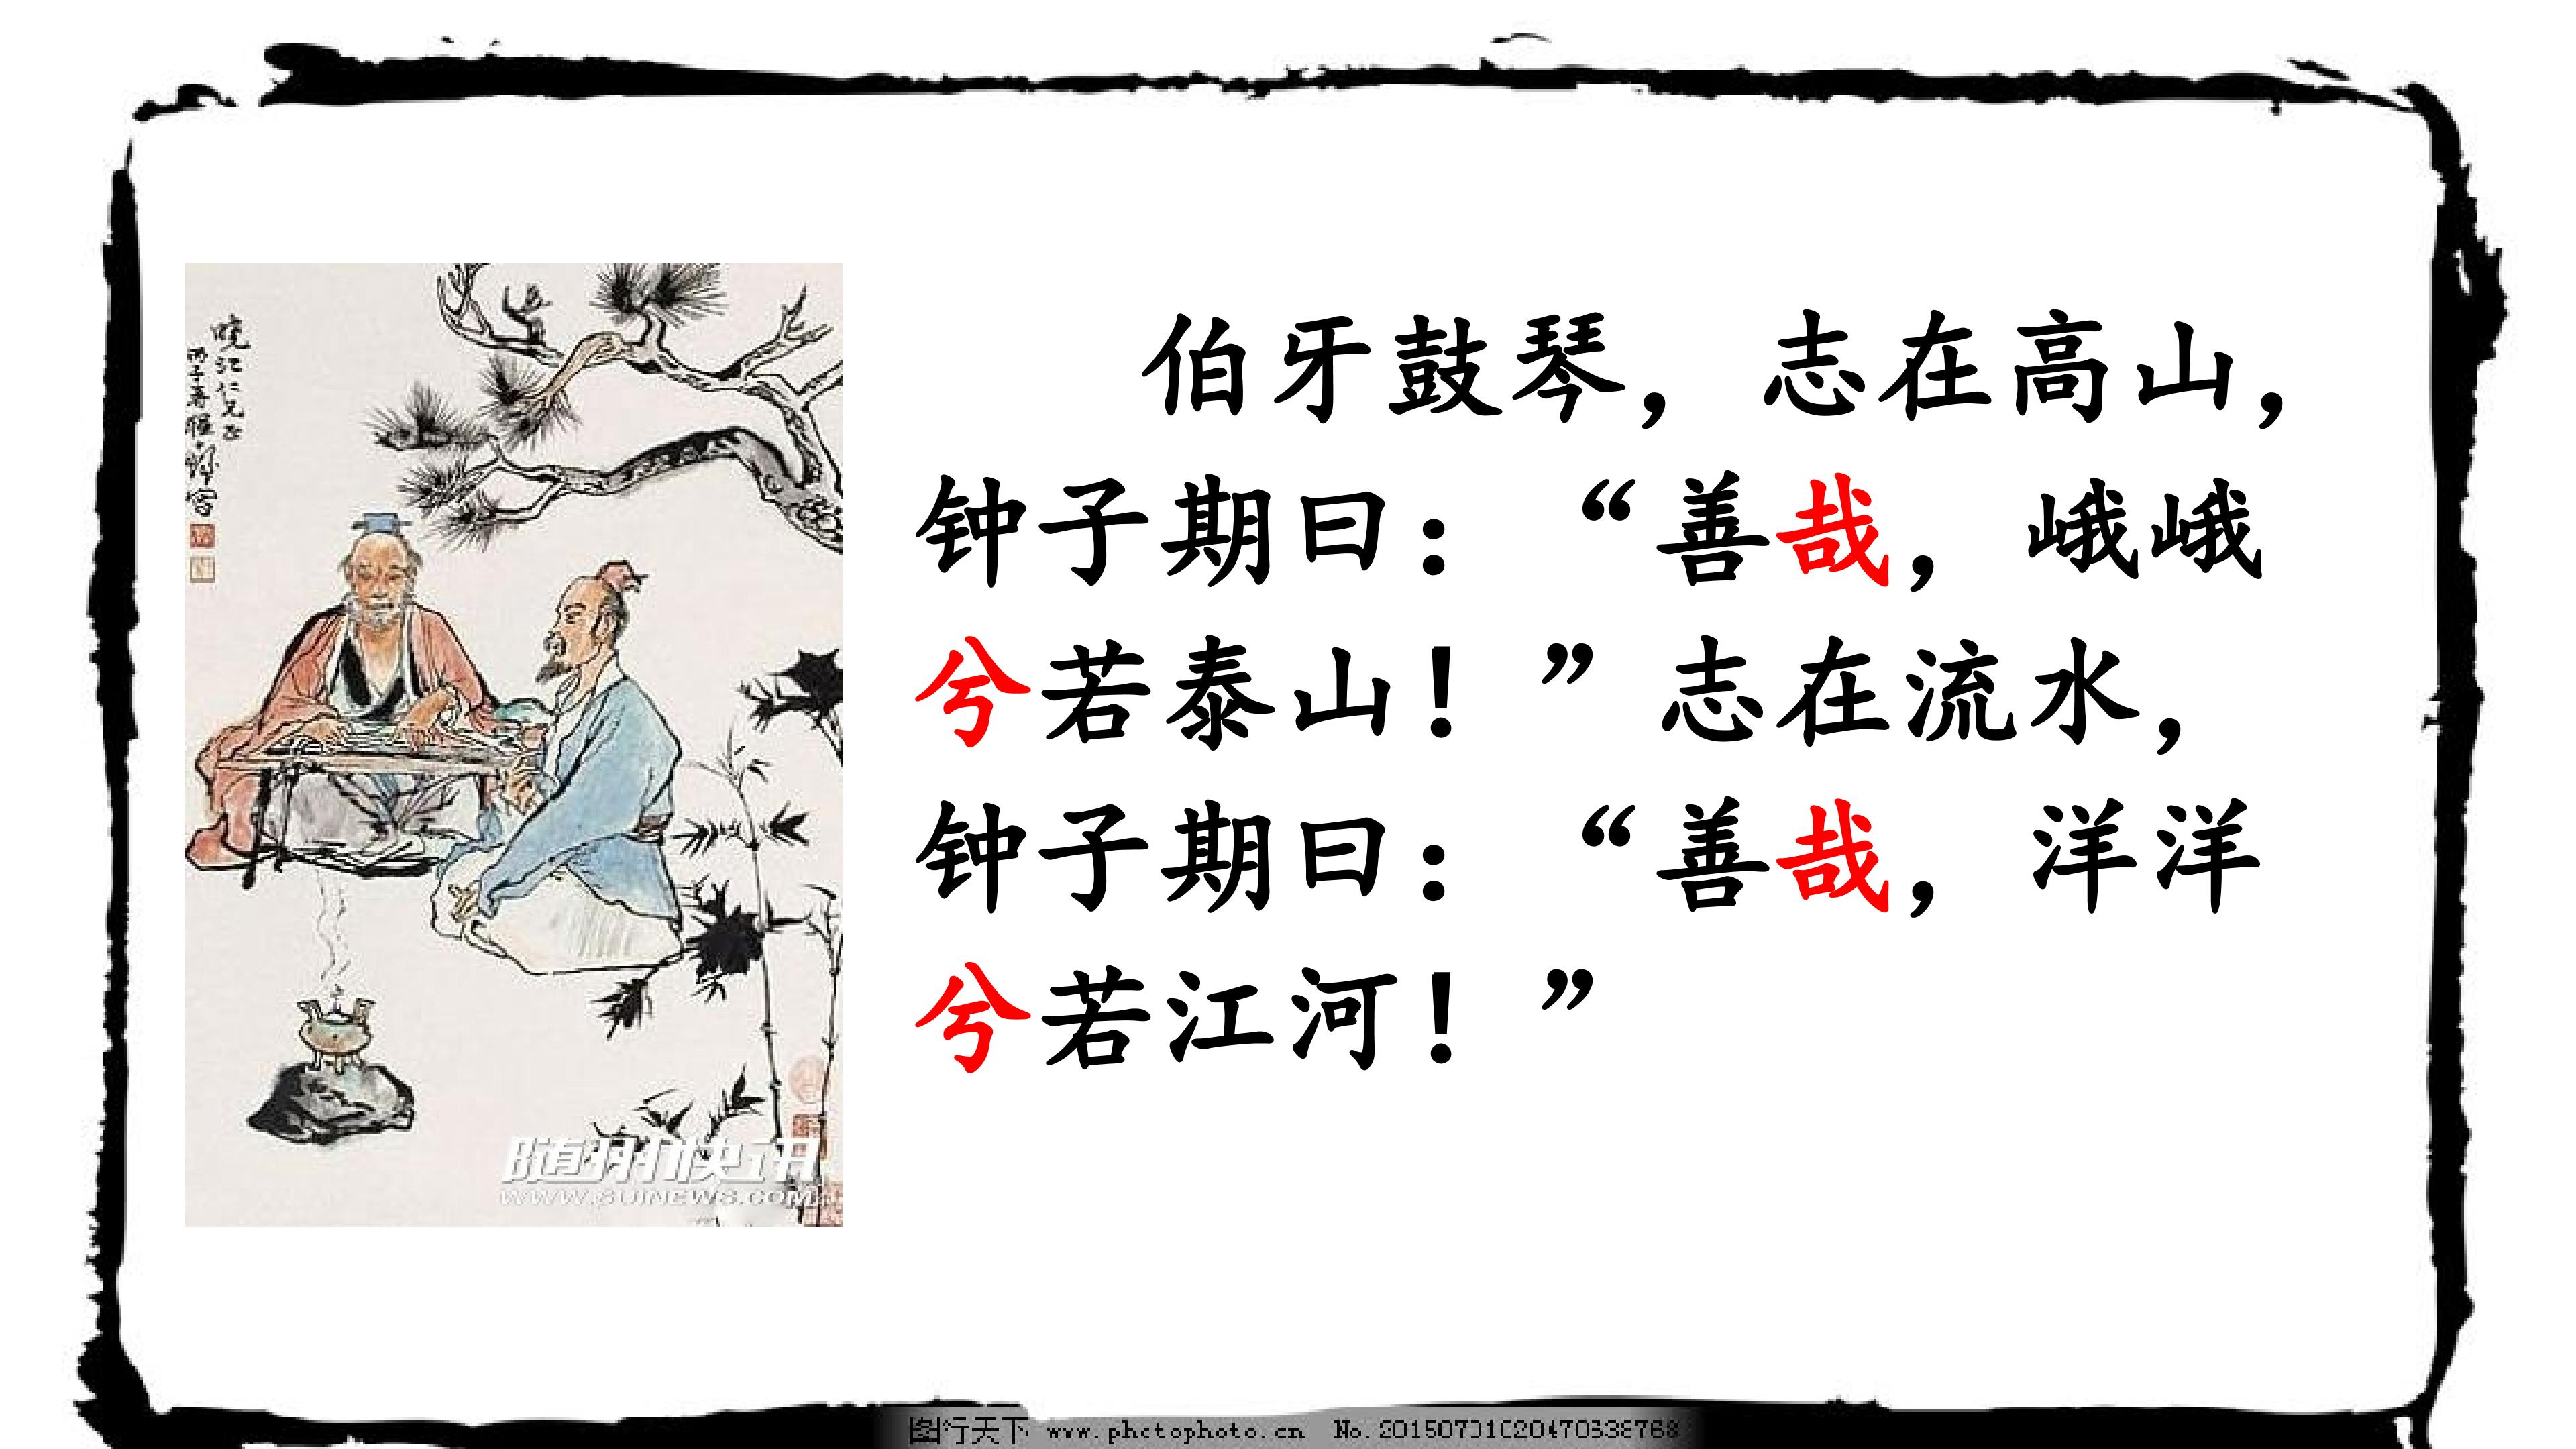 伯牙鼓琴，志在高山，
钟子期曰：“善哉，峨峨
兮若泰山！”志在流水，
钟子期曰：“善哉，洋洋
兮若江河！”
随州快讯
WWW.SUINEWS.COM
图行天下 www.photophoto.cn No.20150701020470638768